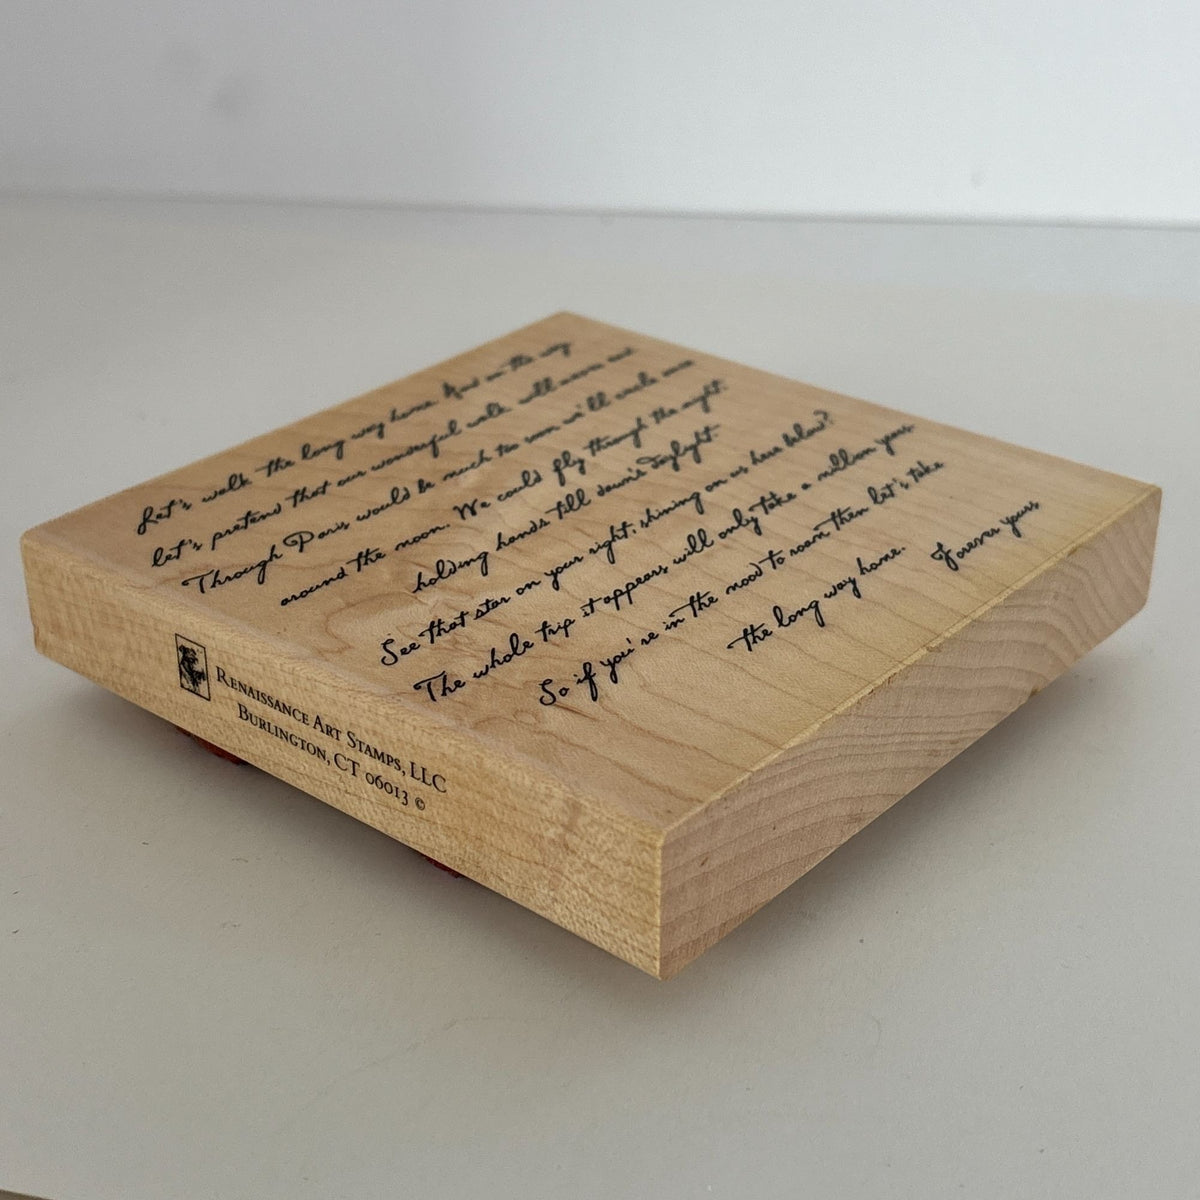 Let's walk the long way home. And on the way
let's pretend that our wonderful walk will never end.
Through Paris would be much too soon we'll circle once
around the moon. We could fly through the night.
holding hands till dawn's daylight.
See that star on your right, shining on us here below?
The whole trip it appears will only take a million years.
So if you're in the mood to roam then let's take
the long way home.
Forever yours
RENAISSANCE ART STAMPS, LLC
BURLINGTON, CT 06013 ©